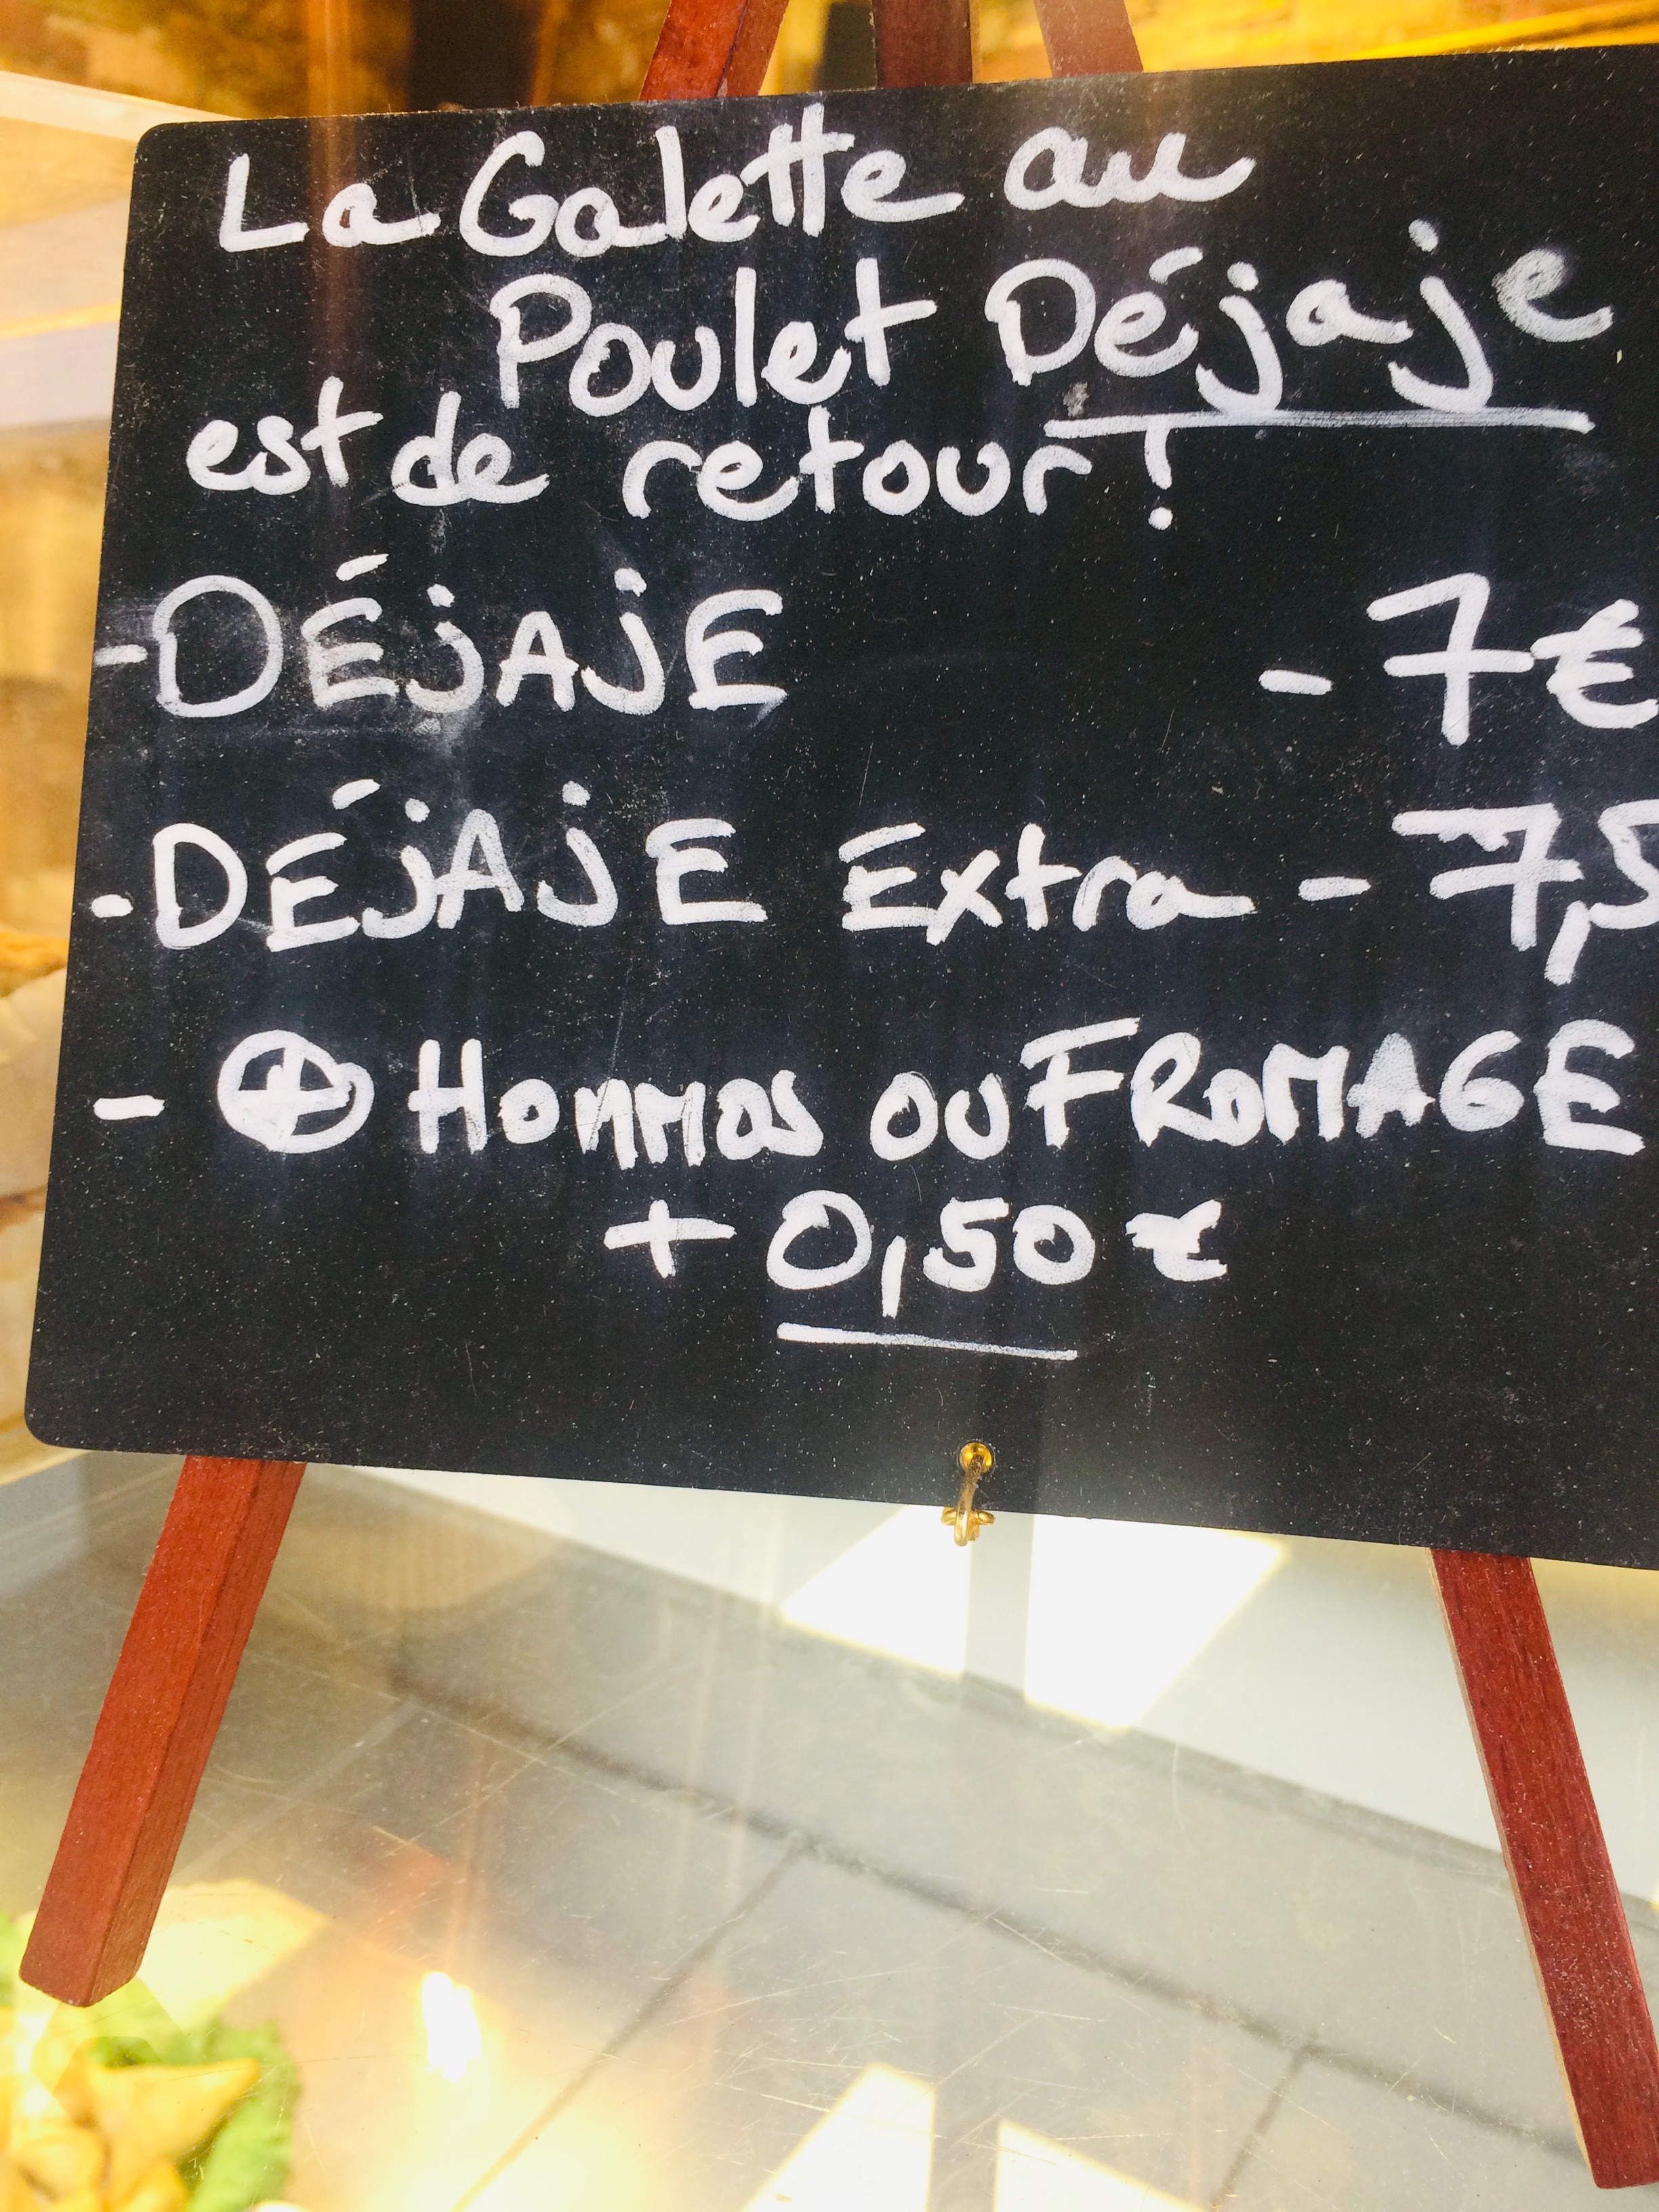 La Galette au
Poulet Déjaje
est de retour !
- DÉjAjE - 7€
- DÉjAjE Extra - 7,5
- + HOMMOS OU FROMAGE
+ 0,50 €